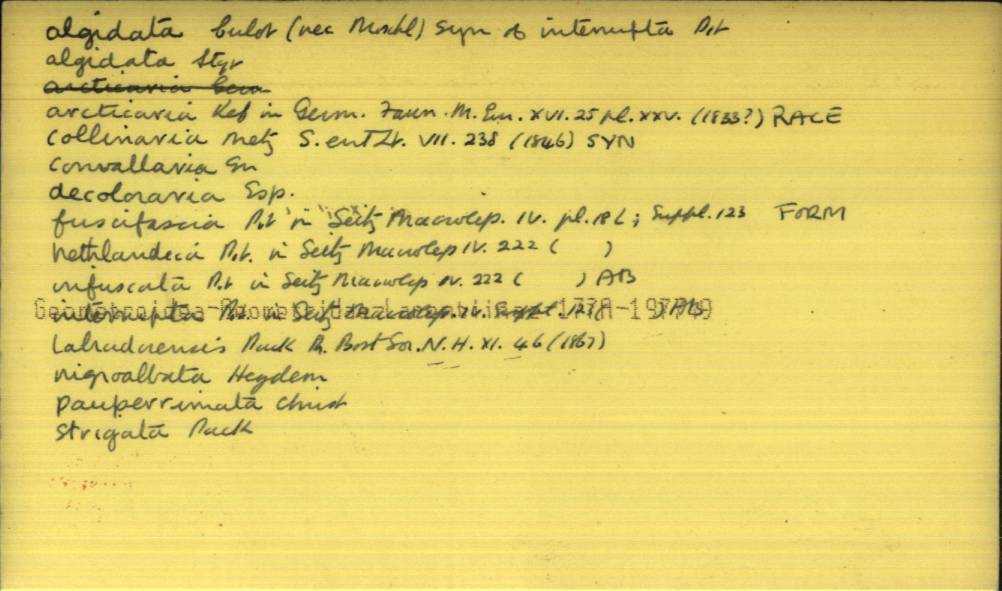 algidata Culot (nec Moschl) syn of interrupta Prt
algidata Stgr
arcticaria Germ
arcticaria Kef in Germ. Faun. M. Eur. XVI. 25 pl. XXV. (1833?) RACE
collinaria Metz S. ent Zt. VII. 238 (1846) SYN
convallaria Gn
decoloraria Esp.
fuscifascia Prt in Seitz Macrolep. IV. pl. 18 L; Suppl. 123 FORM
hethlandica Prt. in Seitz Macrolep IV. 222 ( )
infuscata Prt in Seitz Macrolep IV. 222 ( ) AB
interrupta Prt. in Seitz Macrolep. IV. Suppl. 123 ( ) AB
labradorensis Pack Pr. Bost Soc. N. H. XI. 46 (1867)
nigroalbata Heydem
pauperrimata Christ
strigata Pack